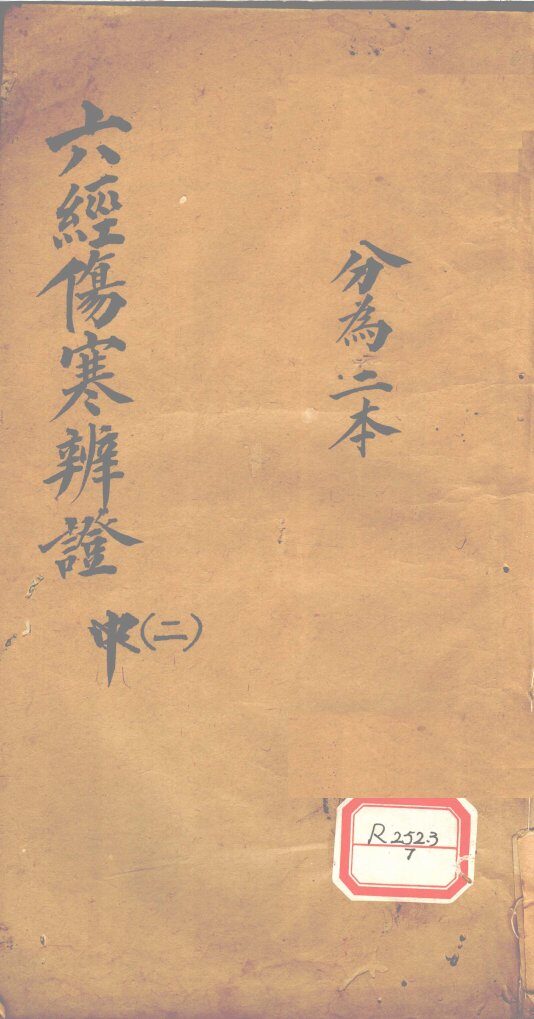 分為二本
六經傷寒辨證
中(二)
R252.3
7